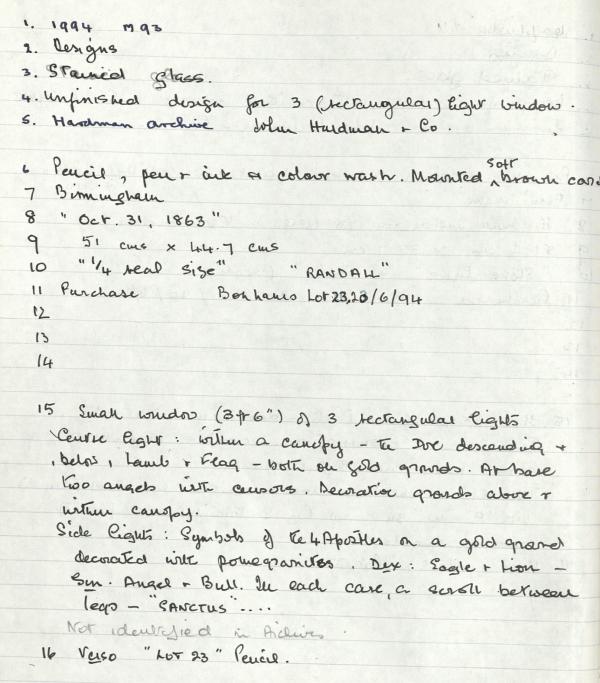 1. 1994 M93
2. Designs
3. Stained glass.
4. Unfinished design for 3 (rectangular) light window.
5. Hardman archive John Hardman + Co.
6 Pencil, pen + ink & colour wash. Mounted soft brown card
7 Birmingham
8 "Oct. 31, 1863"
9 51 cms x 44.7 cms
10 "1/4 real size" "RANDALL"
11 Purchase Bonhams Lot 23, 23/6/94
12
13
14
15 Small window (3ft 6") of 3 rectangular lights
Centre light: within a canopy – the Dove descending +
, below, Lamb + Flag – both on gold grounds. At base
two angels with censors. Decorative grounds above +
within canopy.
Side lights: Symbols of the 4 Apostles on a gold ground
decorated with pomegranites. Dex: Eagle + Lion –
Sin. Angel + Bull. In each case, a scroll between
legs – "SANCTUS"....
Not identified in Archives.
16 Verso "LOT 23" Pencil.